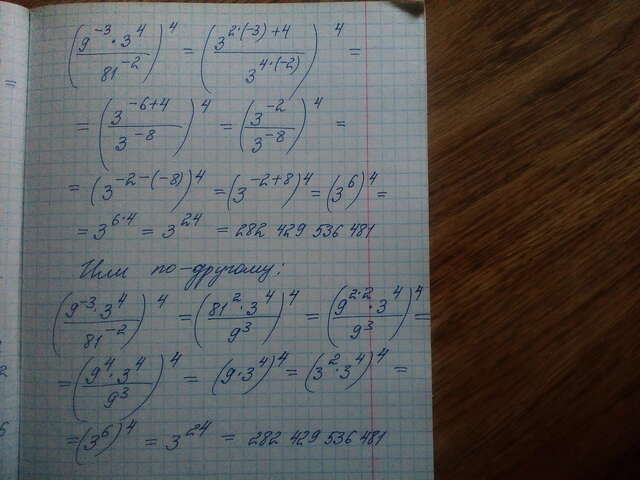 (9^-3 · 3^4 / 81^-2)^4 = (3^2·(-3)+4 / 3^4·(-2))^4 =
= (3^-6+4 / 3^-8)^4 = (3^-2 / 3^-8)^4 =
= (3^-2-(-8))^4 = (3^-2+8)^4 = (3^6)^4 =
= 3^6·4 = 3^24 = 282 429 536 481
Или по-другому:
(9^-3 · 3^4 / 81^-2)^4 = (81^2 · 3^4 / 9^3)^4 = (9^2·2 · 3^4 / 9^3)^4 =
= (9^4 · 3^4 / 9^3)^4 = (9 · 3^4)^4 = (3^2 · 3^4)^4 =
= (3^6)^4 = 3^24 = 282 429 536 481